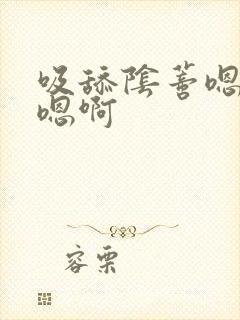 吸舔陰蒂嗯
嗯啊
容栗